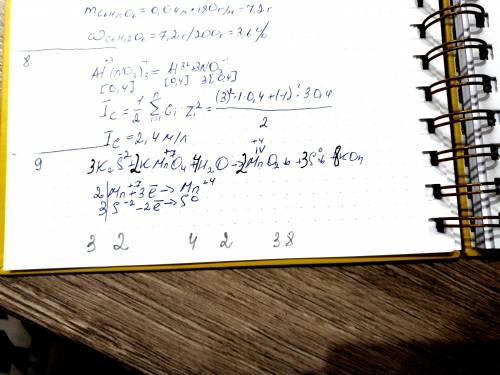 mC₆H₁₂O₆ = 0,04м · 180г/м = 7,2г
ωC₆H₁₂O₆ = 7,2г/200г = 3,6%
8
Al⁺³(NO₃)₃⁻¹ = Al³⁺ + 3NO₃⁻¹
[0,4] [0,4] 3[0,4]
Ic = 1/2 Σ Ci Zi² = ((3)² · 1 · 0,4 + (-1)² · 3 · 0,4) / 2
Ic = 2,4 м/л
9
3K₂S⁻² + 2KMn⁺⁷O₄ + 4H₂O → 2Mn⁺⁴O₂↓ + 3S⁰↓ + 8KOH
2 | Mn⁺⁷ + 3ē → Mn⁺⁴
3 | S⁻² - 2ē → S⁰
3 2 4 2 3 8